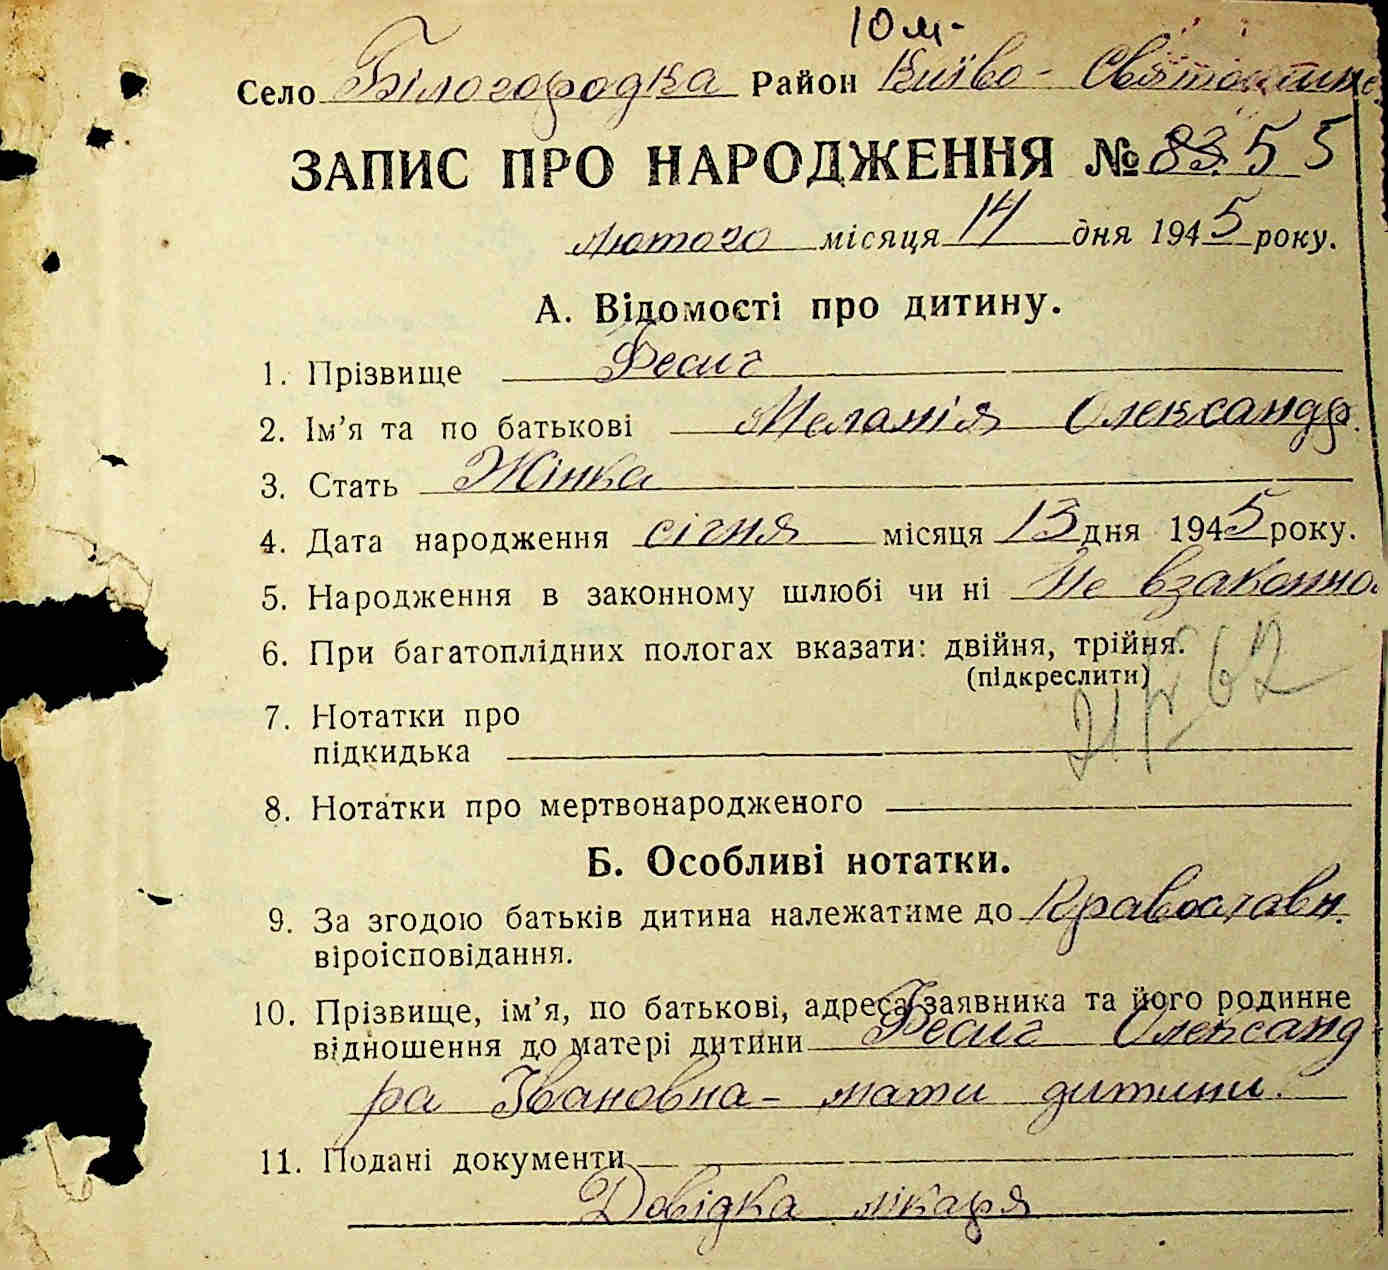 10 м-
Село Білогородка Район Києво - Святошинс.
ЗАПИС ПРО НАРОДЖЕННЯ № 83. 55
лютого місяця 14 дня 1945 року.
А. Відомості про дитину.
1. Прізвище
2. Ім'я та по батькові Меланія Олександр.
3. Стать Жінка
4. Дата народження січня місяця 13 дня 1945 року.
5. Народження в законному шлюбі чи ні Не взаконно.
6. При багатоплідних пологах вказати: двійня, трійня.
(підкреслити)
7. Нотатки про
підкидька
8. Нотатки про мертвонародженого
Б. Особливі нотатки.
9. За згодою батьків дитина належатиме до Православн.
віроісповідання.
10. Прізвище, ім'я, по батькові, адреса заявника та його родинне
відношення до матері дитини Олександ
ра Івановна - мати дитини.
11. Подані документи
Довідка лікаря